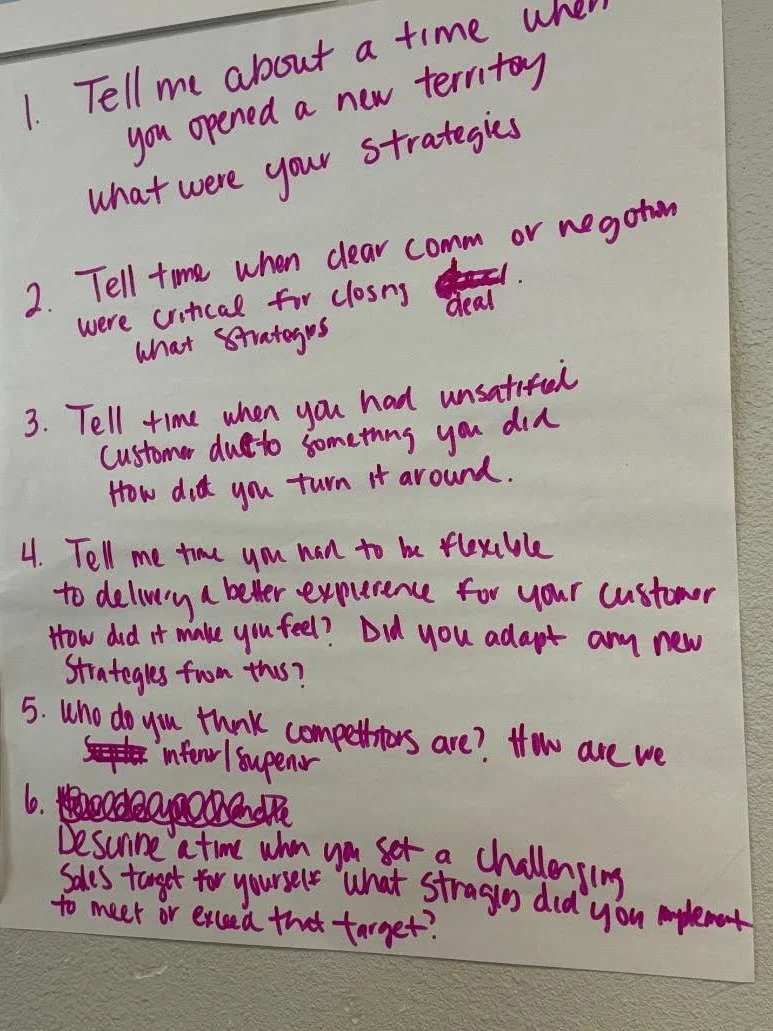 1. Tell me about a time when
you opened a new territoy
what were your strategies
2. Tell time when clear comm or negotian
were critical for closng deal.
what strategies
3. Tell time when you had unsatified
customer due to something you did
How did you turn it around.
4. Tell me time you had to be flexible
to delivery a better expierence for your customer
How did it make you feel? Did you adapt any new
strategies from this?
5. Who do you think compettitors are? How are we
inferior/superior
6.
Describe a time when you set a challenging
sales target for yourself what stragies did you implement
to meet or exceed that target?